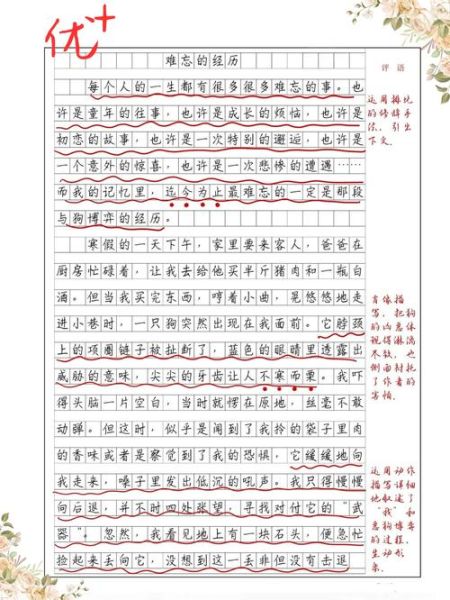 优+
难忘的经历
评 语
每个人的一生都有很多很多难忘的事。也
许是童年的往事，也许是成长的烦恼，也许是
初恋的故事，也许是一次特别的邂逅，也许是
一个意外的惊喜，也许是一次悲惨的遭遇……
而我的记忆里，迄今为止最难忘的一定是那段
与狗博弈的经历。
运用排比
的修辞手
法，引出
下文。
寒假的一天下午，家里要来客人，爸爸在
厨房忙碌着，让我去给他买半斤猪肉和一瓶白
酒。但当我买完东西，哼着小曲，晃悠悠地走
进小巷时，一只狗突然出现在我面前。它脖颈
上的项圈链子被扯断了，蓝色的眼睛里透露出
威胁的意味，尖尖的牙齿让人不寒而栗。我吓
得头脑一片空白，当时就愣在原地，丝毫不敢
动弹。但这时，似乎是闻到了我拎的袋子里肉
的香味或者是察觉到了我的恐惧，它缓缓地向
我走来，嗓子里发出低沉的吼声。我只得慢慢
向后退，并不时四处张望，寻找对付它的“武
器”。忽然，我看见地上有一块石头，便急忙
捡起来丢向它，没想到这一丢非但没有击退
肖像描
写，把狗
的凶恶体
现得淋漓
尽致，也
侧面衬托
了作者的
害怕。
运用动作
描写详细
地叙述了
“我”和
恶狗博弈
的过程，
生动形
象。